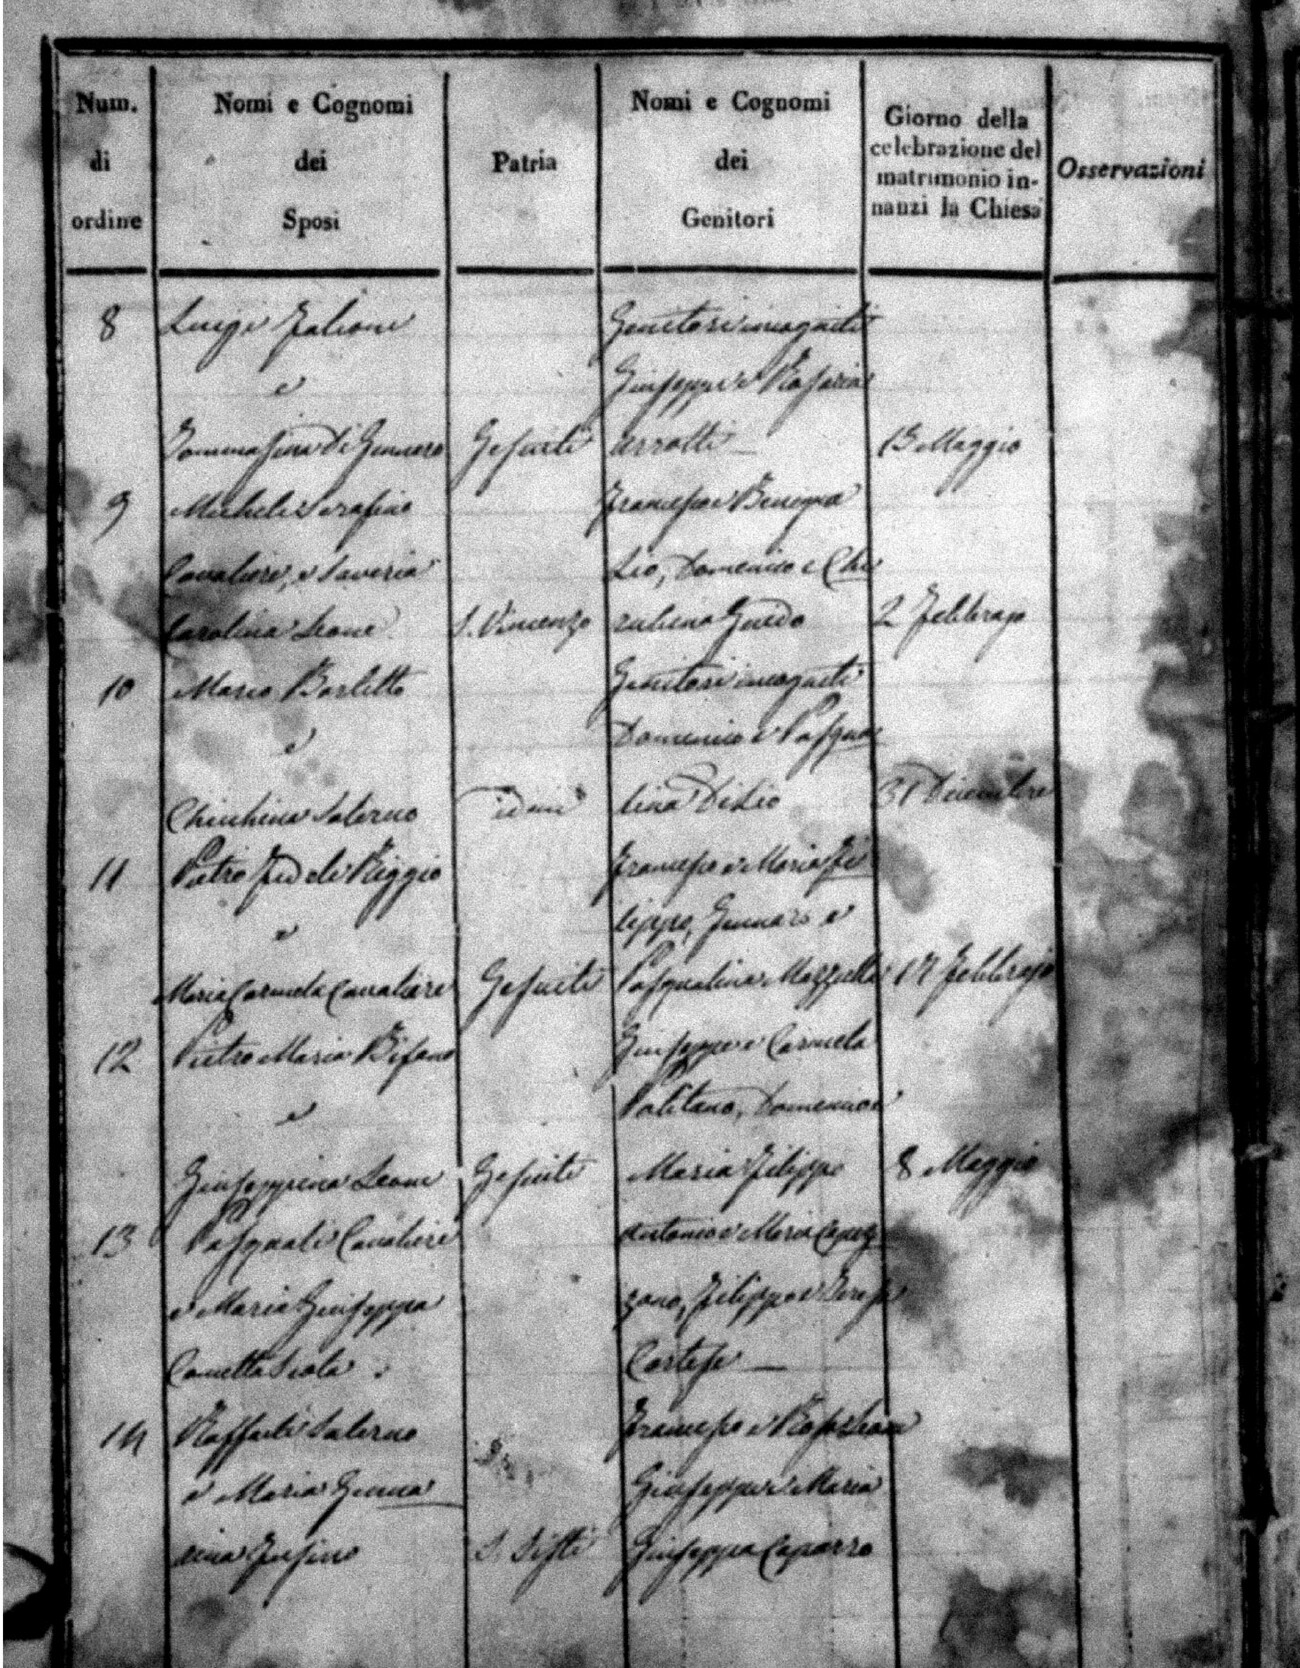 Num. di ordine
Nomi e Cognomi dei Sposi
Patria
Nomi e Cognomi dei Genitori
Giorno della
celebrazione del
matrimonio in-
nanzi la Chiesa
Osservazioni
8 Luigi Genitori incogniti
e Giuseppe e Rosaria
Tommasina Di Gennaro Gesuiti 13 Maggio
9 Michele Serafino Francesco e
Cavaliere, e Saveria Lio, Domenico e Che
Carolina Leone S. Vincenzo rubina Guido 2 Febbrajo
10 Mario Barletto Genitori incogniti
e Domenico e Pasqua
Salerno idem lina Di Lio 31 Decembre
11 Pietro Fedele Reggio Francesco e Maria Fi
e lippo, Gennaro e
Maria Carmela Cavaliere Gesuiti Pasqualina Mazzulla 17 Febbrajo
12 Pietro Maria Bifano Giuseppe e Carmela
e Politano, Domenico e
Giuseppina Leone Gesuiti Maria Filippo 8 Maggio
13 Pasquale Cavaliere Antonio e Maria Capoz
e Maria Giuseppa zano, Filippo e Teresa
Cortese
14 Raffaele Salerno Francesco e Rosa Leone
e Maria Genna Giuseppe e Maria
rina S. Sisti Giuseppa Caparro